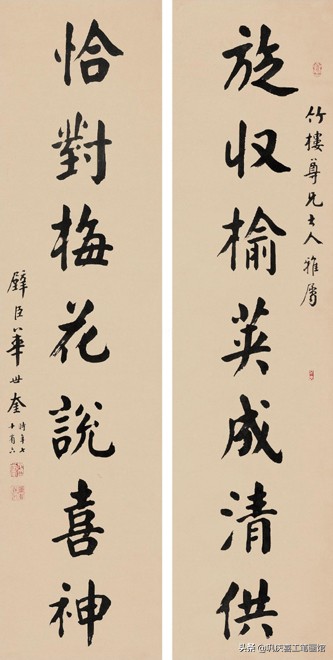 竹樓尊兄大人雅屬
旋収榆莢成清供
恰對梅花說喜神
璧臣華世奎
時年七
十有六
头条 @巩庆喜工笔画馆